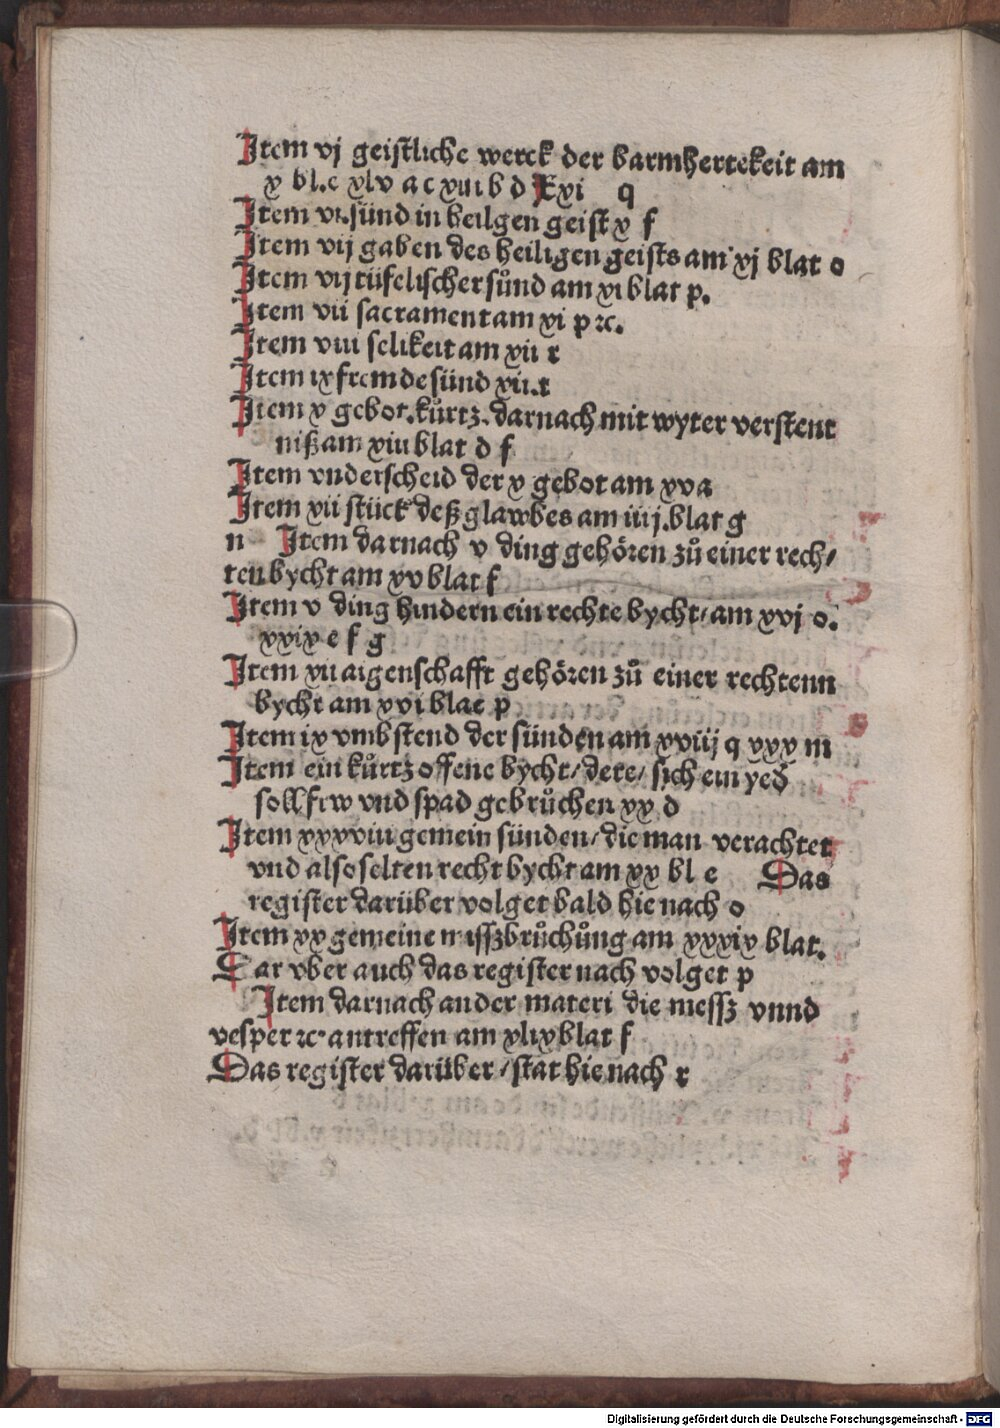 Item vj geistliche werck der barmhertekeit am
x bl.e xlv a c xuiı b d Exi q
Item vı.sünd in heilgen geist x f
Item vij gaben des heiligen geists am xj blat o
Item vij tüfelischer sůnd am xi blat p.
Item vii sacrament am xi p ꝛc.
Item viii selikeit am xii r
Item ix fremde sünd xii.t
Item x gebot.kůrtz.darnach mit wyter verstent
niß am xiii blat d f
Item vnderscheid der x gebot am xv a
Item xii stück deß glawbes am iiij.blat g
n Item darnach v ding gehören zů einer rech/
ten bycht am xv blat f
Item v ding hindern ein rechte bycht/am xvj o.
xxix e f g
Item xii aigenschafft gehören zů einer rechtenn
bycht am xvi blat p
Item ix vmbstend der sünden am xviij q xxx m
Item ein kůrtz offene bycht/dere/sich ein yed
soll frw vnd spad gebrůchen xx d
Item xxxviii gemein sünden/die man verachtet
vnd also selten recht bycht am xx bl e Das
register darüber volget bald hie nach o
Item xx gemeine missbrůchůng am xxxix blat.
Dar vber auch das register nach volget p
Item darnach ander materi die messz vnnd
vesper ꝛc. antreffen am xlix blat f
Das register darüber/stat hie nach r
Digitalisierung gefördert durch die Deutsche Forschungsgemeinschaft - DFG